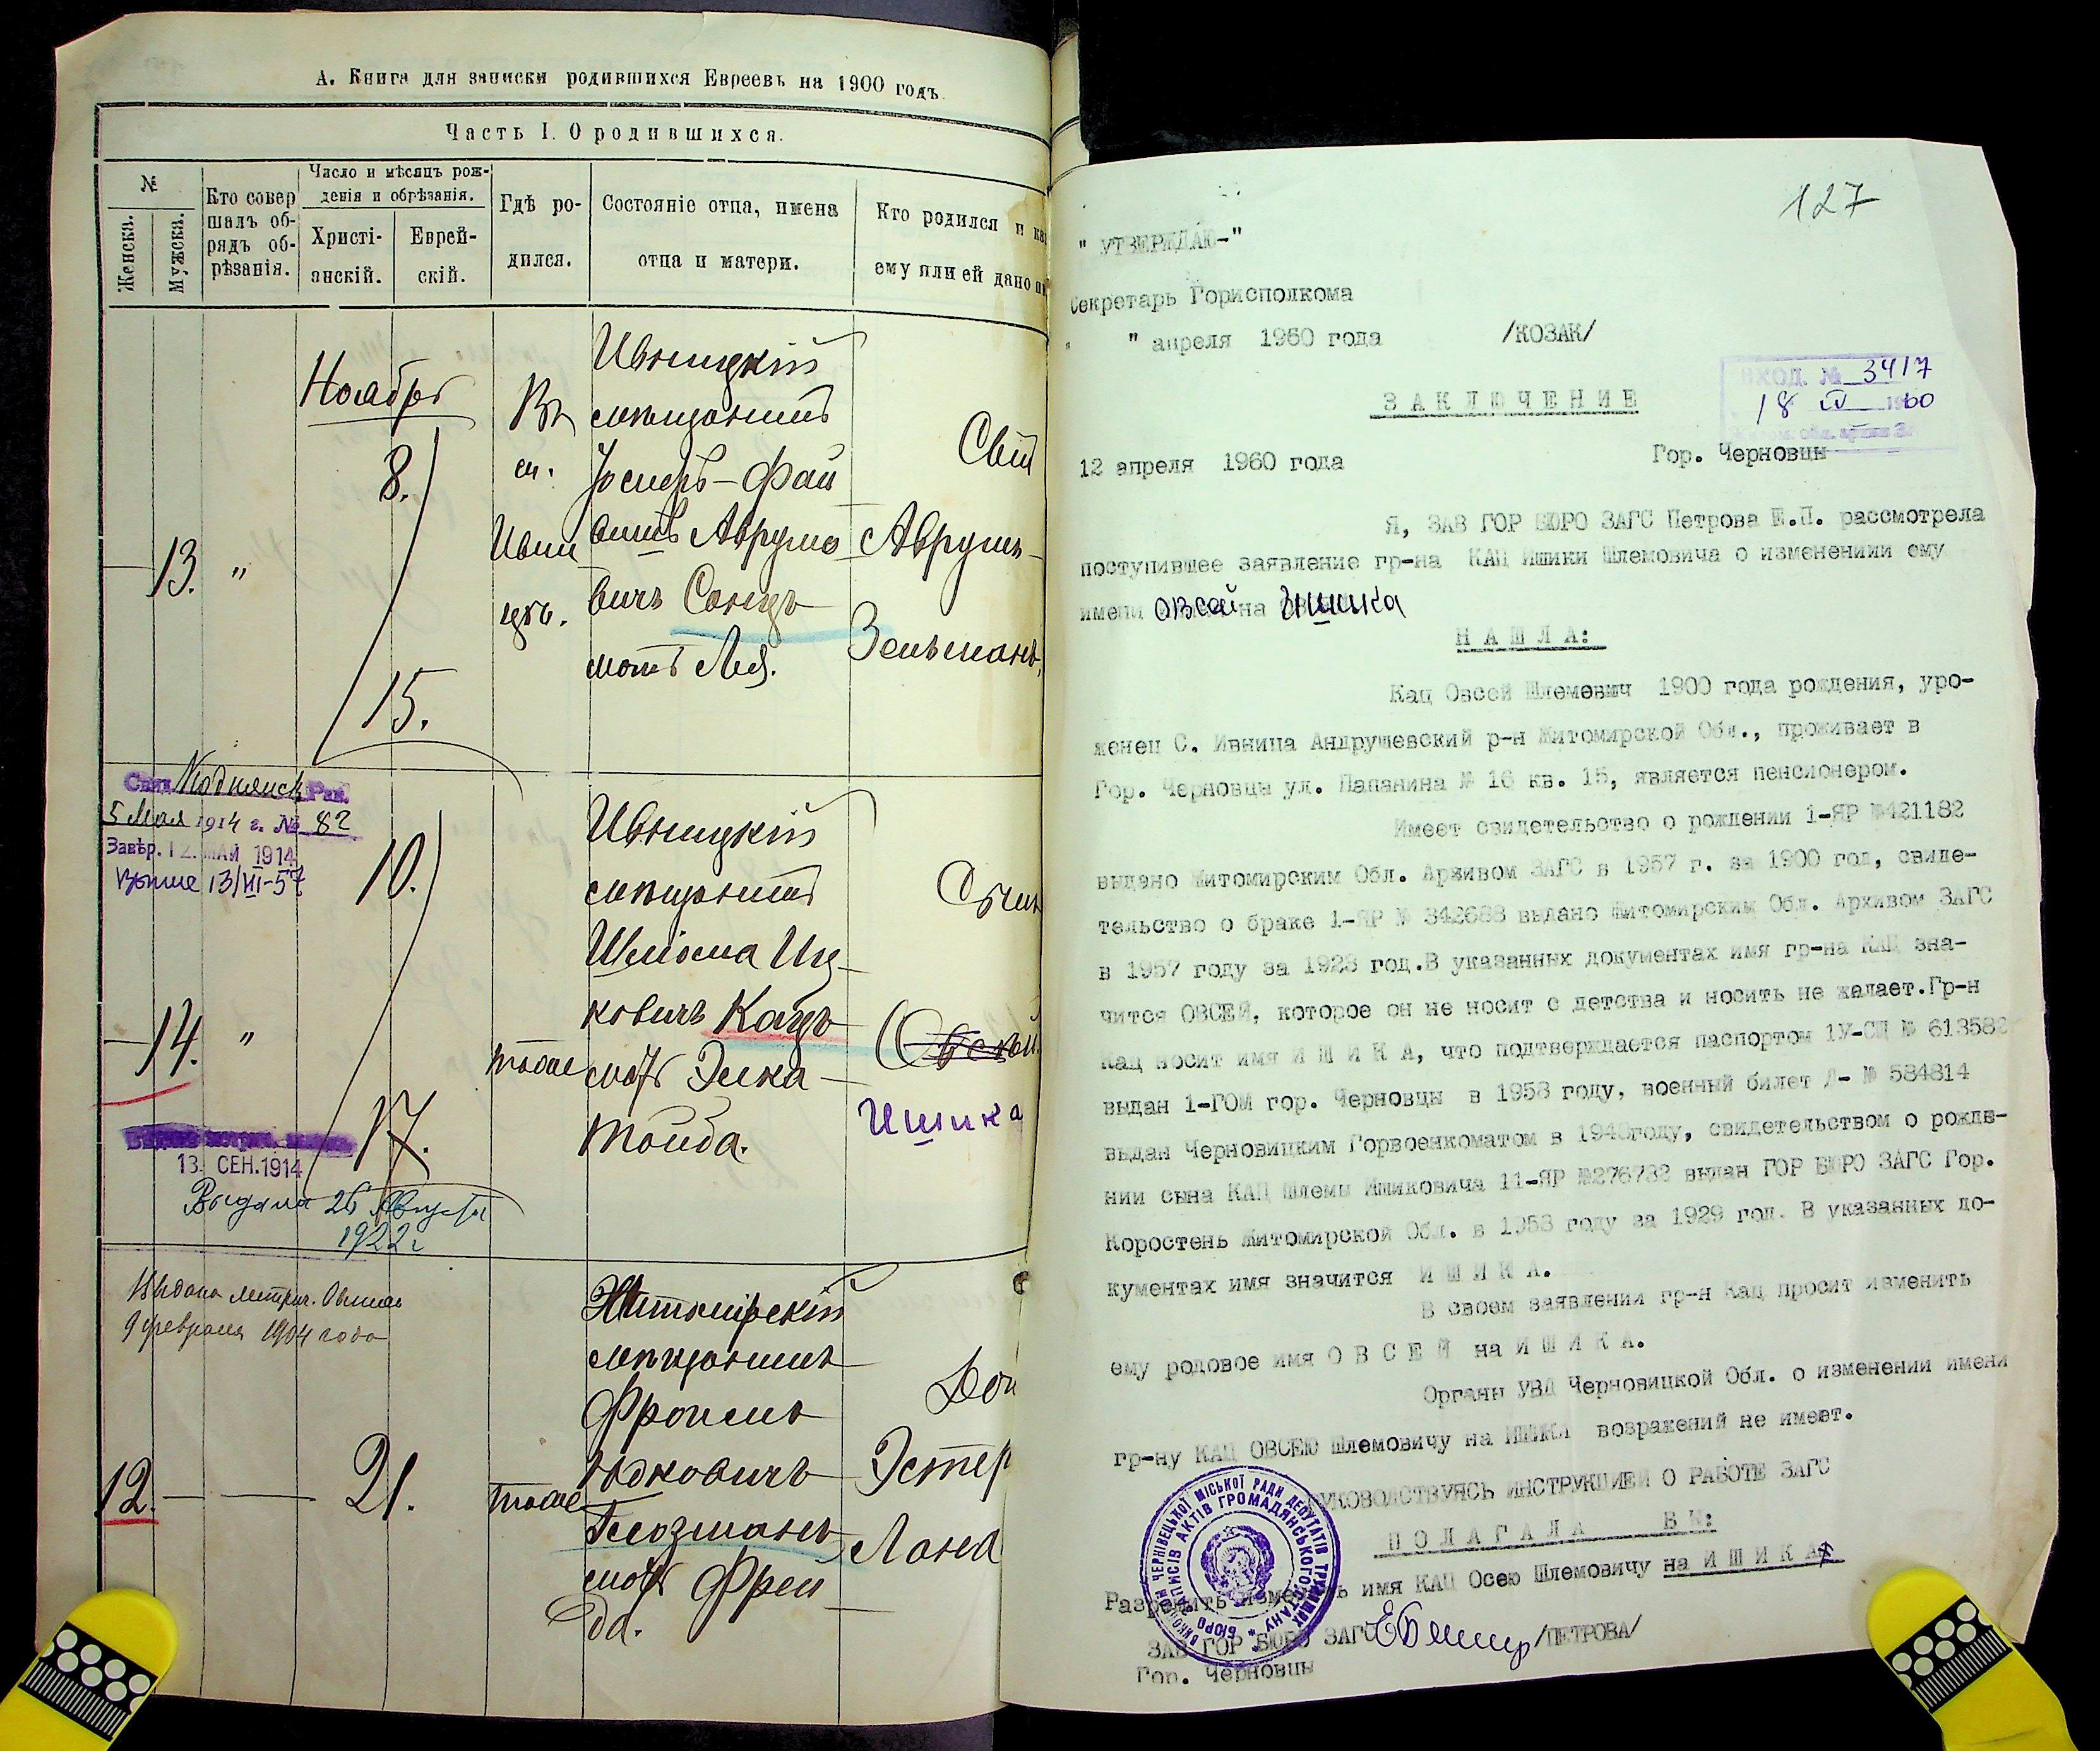 А. Книга для записки родившихся Евреевъ на 1900 годъ.
Часть I. О родившихся.
№
Женска.
Мужска.
Кто совер
шалъ об-
рядъ об-
рѣзанія.
Число и мѣсяцъ рож-
денія и обрѣзанія.
Христі-
анскій.
Еврей-
скій.
Гдѣ ро-
дился.
Состояніе отца, имена
отца и матери.
Кто родился и как
ему или ей дано
13.
"
Ноября
8.
15.
Въ
м.
Ивни
цѣ.
Ивницкій
мѣщанинъ
Іосифъ-Фай
вишъ Аврумо
вичъ
мать Лея.
Сын
Аврумъ-
Зельманъ,
Свид. Рав.
5 Мая 1914 г. № 82
Завѣр. 12. МАЙ 1914
13/VII-57
14.
"
10.
17.
тоже
Ивницкій
мѣщанинъ
Шліома Иц-
ковичъ Кацъ
мать Элка-
Тойба.
Сынъ
Овсей.
Ишика
13. СЕН. 1914
Выдана 26 Августа
1922 г
Выдана метрич.
9 февраля 1904 года
12.
21.
тоже
Житомірскій
мѣщанинъ
Фроимъ
Глозманъ
мать Фрей-
да.
Доч
Эстер
127
" УТВЕРЖДАЮ-"
Секретарь Горисполкома
" апреля 1960 года /КОЗАК/
ВХОД. № 3417
18 IV 1960
ЗАКЛЮЧЕНИЕ
12 апреля 1960 года Гор. Черновцы
Я, ЗАВ ГОР БЮРО ЗАГС Петрова Е.П. рассмотрела
поступившее заявление гр-на КАЦ Ишики Шлемовича о изменениии ему
имени Овсей на Ишика
НАШЛА:
Кац Овсей Шлемович 1900 года рождения, уро-
женец С. Ивница Андрушевский р-н Житомирской Обл., проживает в
Гор. Черновцы ул. Папанина № 16 кв. 15, является пенсионером.
Имеет свидетельство о рождении 1-ЯР №421182
выдано Житомирским Обл. Архивом ЗАГС в 1957 г. за 1900 год, свиде-
тельство о браке 1-ЯР № 342688 выдано Житомирским Обл. Архивом ЗАГС
в 1957 году за 1923 год.В указанных документах имя гр-на КАЦ зна-
чится ОВСЕЙ, которое он не носит с детства и носить не желает.Гр-н
Кац носит имя И Ш И К А, что подтверждается паспортом 1У-СЦ № 613582
выдан 1-ГОМ гор. Черновцы в 1958 году, военный билет Д- № 584814
выдан Черновицким Горвоенкоматом в 1948году, свидетельством о рожде-
нии сына КАЦ Шлемы Ишиковича 11-ЯР №276732 выдан ГОР БЮРО ЗАГС Гор.
Коростень Житомирской Обл. в 1953 году за 1929 год. В указанных до-
кументах имя значится И Ш И К А.
В своем заявлении гр-н Кац просит изменить
ему родовое имя О В С Е Й на И Ш И К А.
Органы УВД Черновицкой Обл. о изменении имени
гр-ну КАЦ ОВСЕЮ Шлемовичу на ИШИКА возражений не имеет.
РУКОВОДСТВУЯСЬ ИНСТРУКЦИЕЙ О РАБОТЕ ЗАГС
ПОЛАГАЛА БЫ:
Разрешить изменить имя КАЦ Осею Шлемовичу на И Ш И К А
ЗАВ ГОР БЮРО ЗАГС /ПЕТРОВА/
Гор. Черновцы